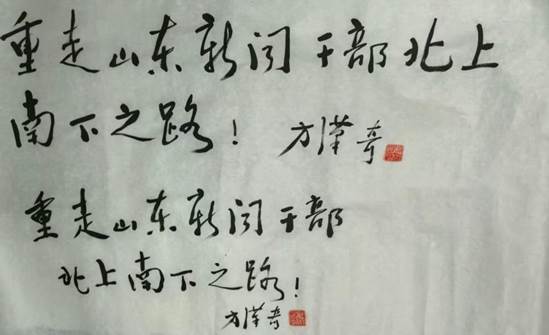 重走山东新闻干部北上
南下之路！ 方汉奇
重走山东新闻干部
北上南下之路！
方汉奇